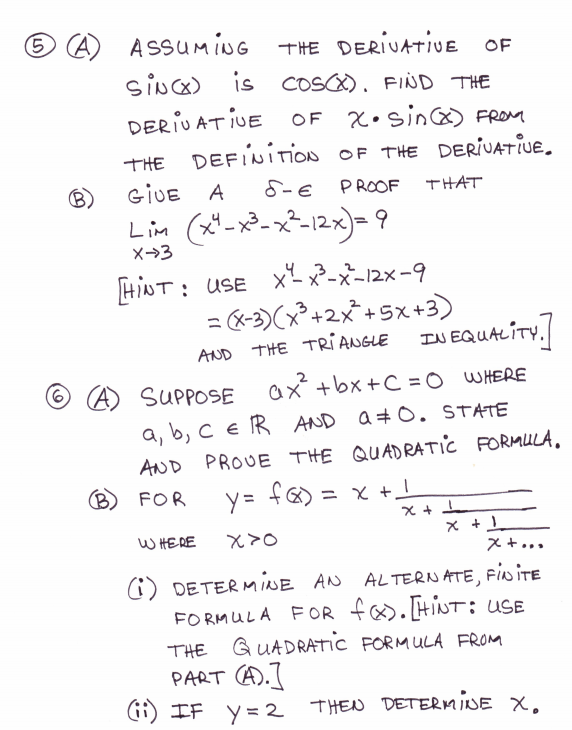 ⑤ (A) ASSUMING THE DERIVATIVE OF
sin(x) is cos(x). FIND THE
DERIVATIVE OF x•sin(x) FROM
THE DEFINITION OF THE DERIVATIVE.
(B) GIVE A δ-ϵ PROOF THAT
Lim (x⁴-x³-x²-12x)=9
x→3
[HINT: USE x⁴-x³-x²-12x-9
=(x-3)(x³+2x²+5x+3)
AND THE TRIANGLE INEQUALITY.]
⑥ (A) SUPPOSE ax²+bx+c=0 WHERE
a, b, c ∈ ℝ AND a≠0. STATE
AND PROVE THE QUADRATIC FORMULA.
(B) FOR y= f(x) = x + 1
x + 1
x + 1
WHERE x>0 x+...
(i) DETERMINE AN ALTERNATE, FINITE
FORMULA FOR f(x). [HINT: USE
THE QUADRATIC FORMULA FROM
PART (A).]
(ii) IF y=2 THEN DETERMINE x.